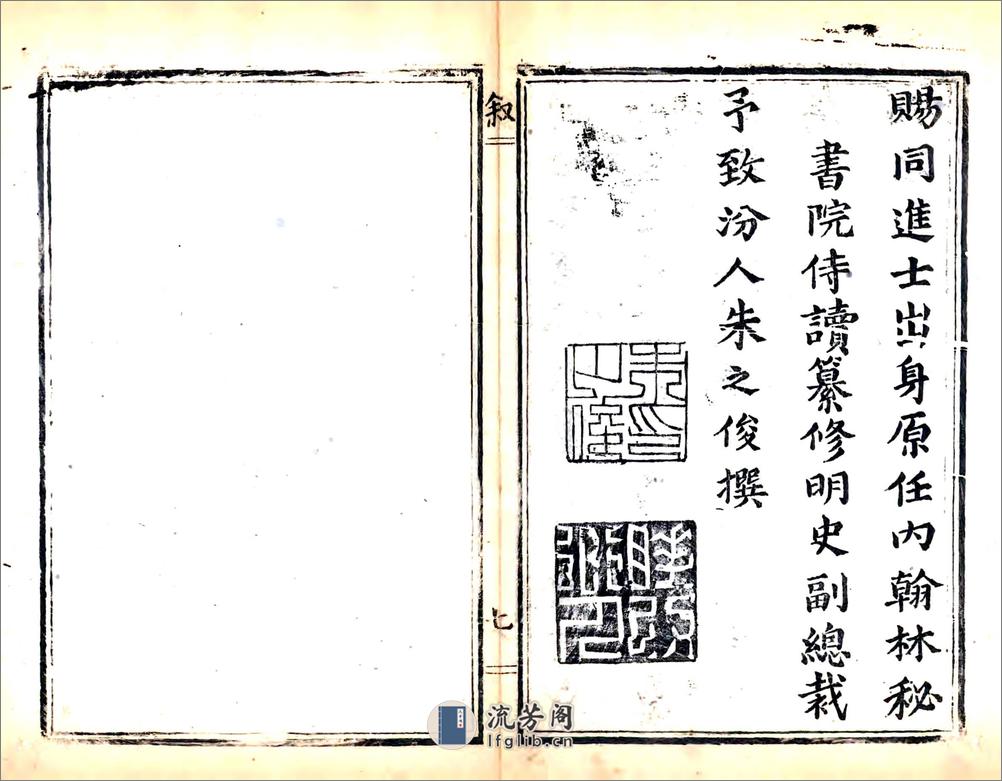 賜同進士出身原任內翰林秘
書院侍讀纂修明史副總裁
予致汾人朱之俊撰
朱印之俊
叙
七
流芳阁
lfglib.cn